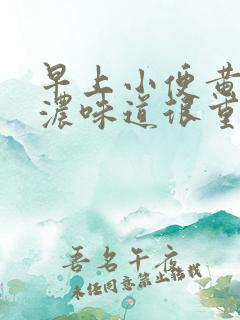 早上小便黄
浓味道很重
吾名午夜
未经同意禁止转载